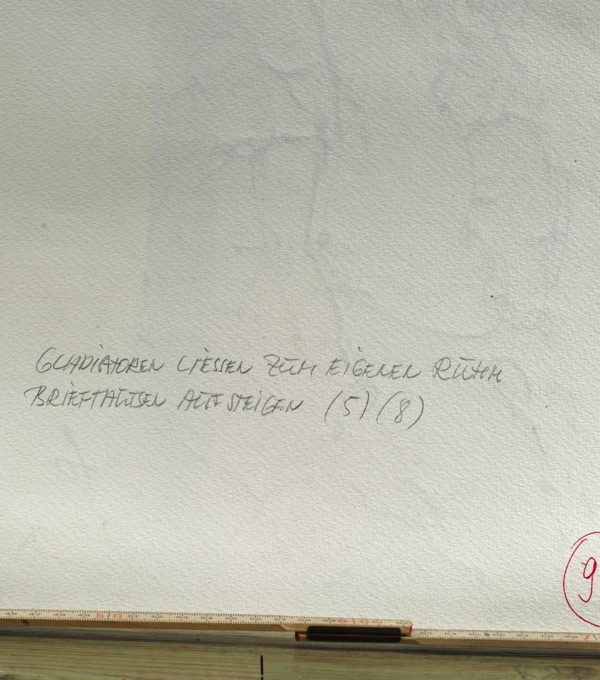 GLADIATOREN LIESSEN ZUM EIGENEN RUHM
BRIEFTAUBEN AUFSTEIGEN (5) (8)
9